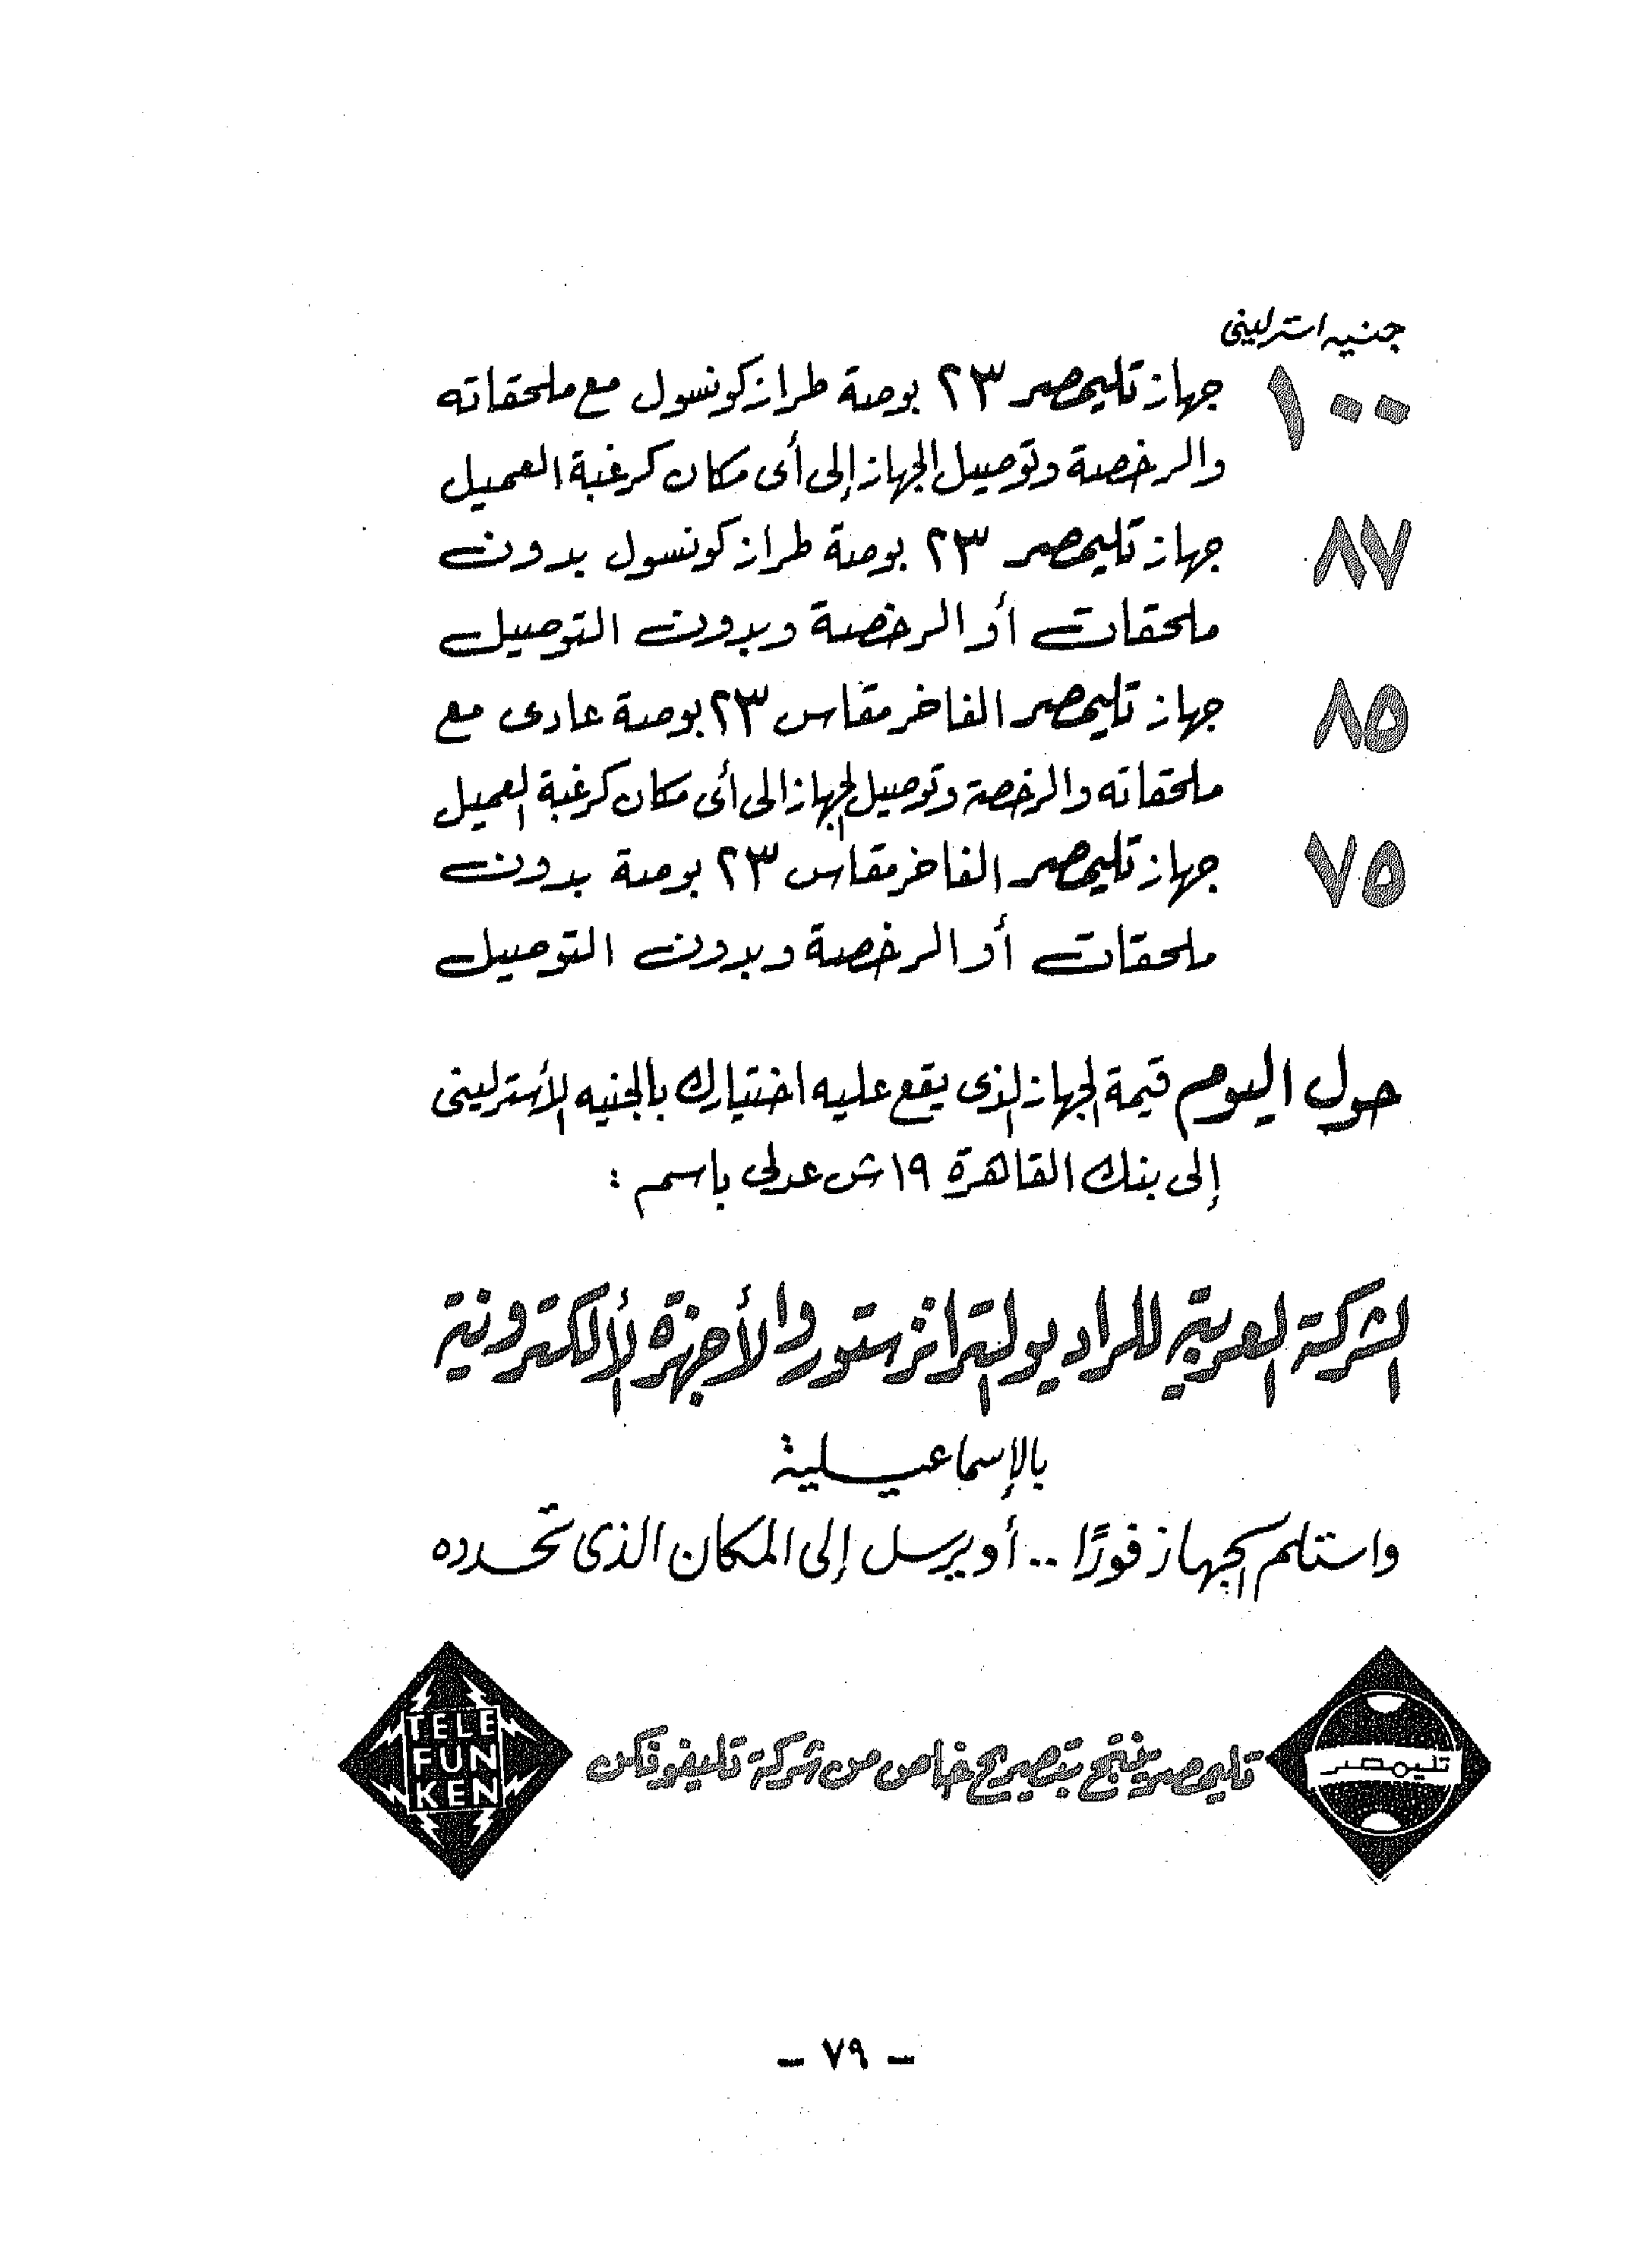 جنيه استرلينى
١٠٠ جهاز تليمصر ٢٣ بوصة طراز كونسول مع ملحقاته
والرخصة وتوصيل الجهاز إلى أى مكان كرغبة العميل
٨٧ جهاز تليمصر ٢٣ بوصة طراز كونسول بدون
ملحقات أو الرخصة وبدون التوصيل
٨٥ جهاز تليمصر الفاخر مقاس ٢٣ بوصة عادى مع
ملحقاته والرخصة وتوصيل الجهاز الى أى مكان كرغبة العميل
٧٥ جهاز تليمصر الفاخر مقاس ٢٣ بوصة بدون
ملحقات أو الرخصة وبدون التوصيل
حول اليوم قيمة الجهاز الذى يقع عليه اختيارك بالجنيه الأسترلينى
إلى بنك القاهرة ١٩ ش عدلى باسم :
الشركة العربية للراديو الترانزستور والأجهزة الألكترونية
بالإسماعيلية
واستلم الجهاز فورًا .. أو يرسل إلى المكان الذى تحدده
تليمصر
تليمصر ينتج بتصريح خاص من شركة تليفونكن
TELE
FUN
KEN
- ٧٩ -